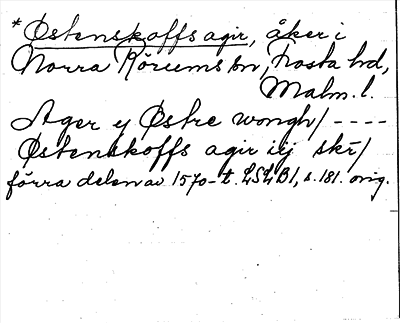 *Østenskoffs agir, åker i
Norra Rörums sn, Frosta hd,
Malm. l.
Ager y Østre wongh/ ----
Østenskoffs agir iij skr̄/
förra delen av 1570-t. LSLB1, s. 181. orig.